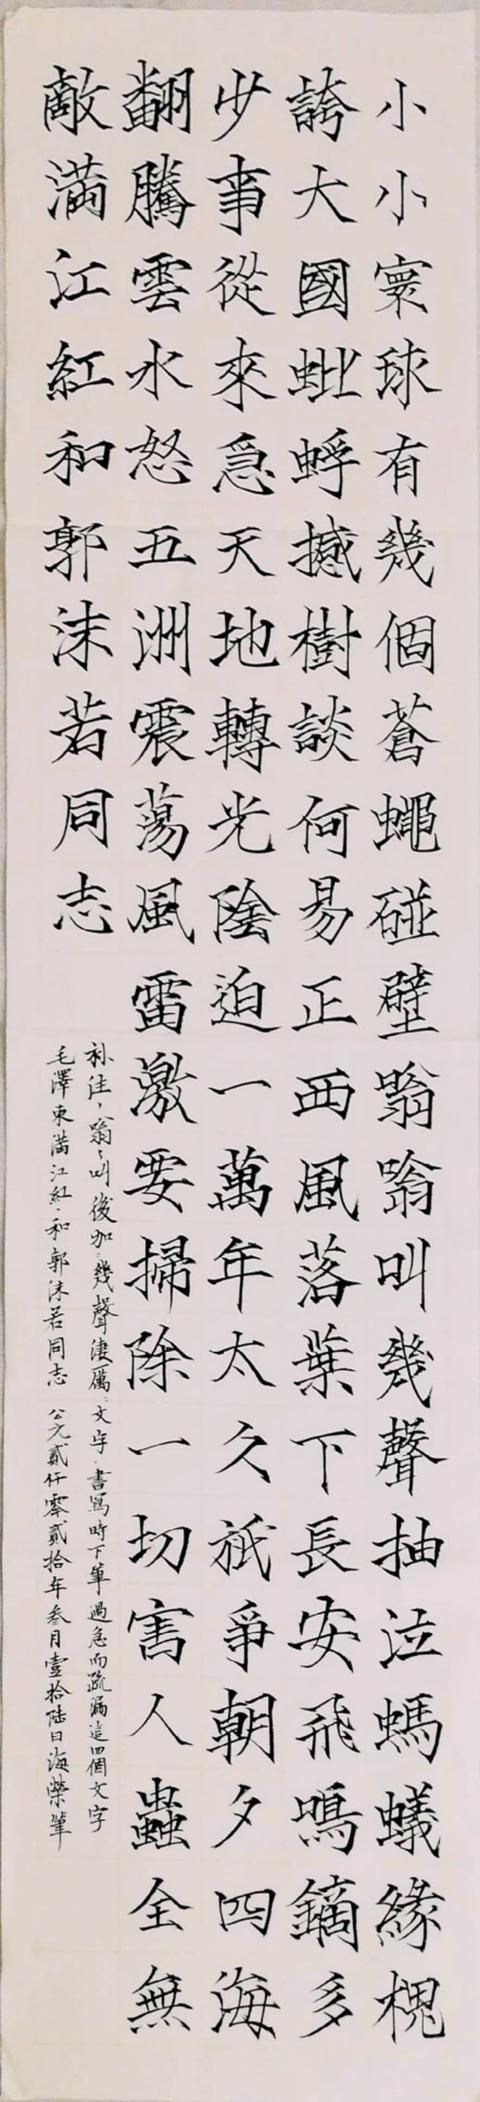 小小寰球有幾個蒼蠅碰壁嗡嗡叫幾聲抽泣螞蟻緣槐
誇大國蚍蜉撼樹談何易正西風落葉下長安飛鳴鏑多
少事從來急天地轉光陰迫一萬年太久祇爭朝夕四海
翻騰雲水怒五洲震蕩風雷激要掃除一切害人蟲全無
敵滿江紅和郭沫若同志
补注，嗡嗡叫後加：幾聲淒厲：文字，書寫時下筆過急而疏漏這四個文字
毛澤東滿江紅·和郭沫若同志 公元貳仟零貳拾年叁月壹拾陸日海榮筆